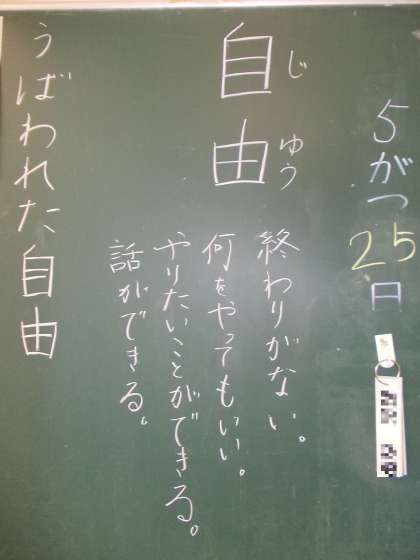 5がつ25日
自由
じゆう
終わりがない。
何をやってもいい。
やりたいことができる。
話ができる。
うばわれた自由